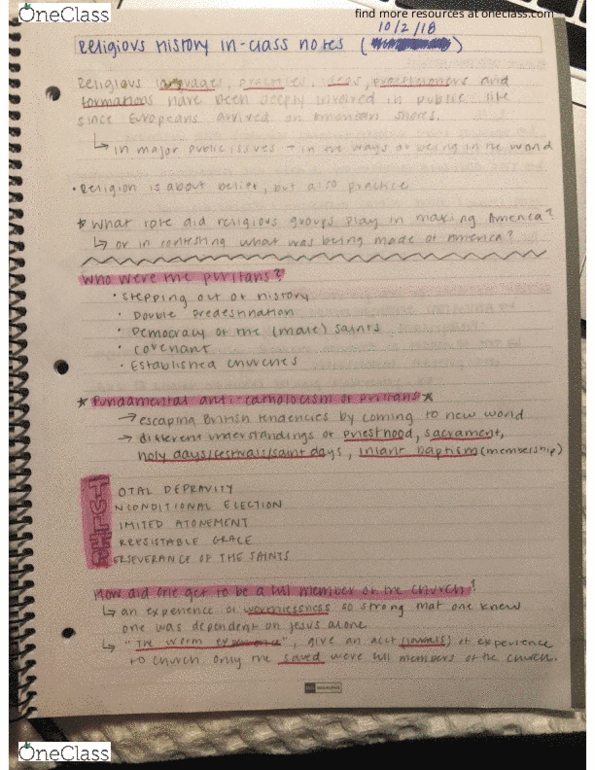 OneClass
find more resources at oneclass.com
10/2/18
Religious History in-class notes ( )
Religious languages, practices, ideas, practitioners and
formations have been deeply involved in public life
since Europeans arrived on American shores.
↳ in major public issues - in the ways of being in the world
• Religion is about belief, but also practice
* What role did religious groups play in making America?
↳ or in contesting what was being made of America?
Who were the puritans?
• Stepping out of history
• Double Predestination
• Democracy of the (male) saints
• Covenant
• Established churches
* Fundamental anti-catholocism of puritans *
→ escaping British tendencies by coming to new world
→ different understandings of priesthood, sacrament,
holy days/festivals/saint days, infant baptism (membership)
TOTAL DEPRAVITY
UNCONDITIONAL ELECTION
LIMITED ATONEMENT
IRRESISTABLE GRACE
PERSEVERANCE OF THE SAINTS
How did one get to be a full member of the church?
↳ an experience of worthlessness so strong that one knew
one was dependent on Jesus alone.
↳ "The worm experience", give an acct of experience
to church only the saved were full members of the church.
OneClass